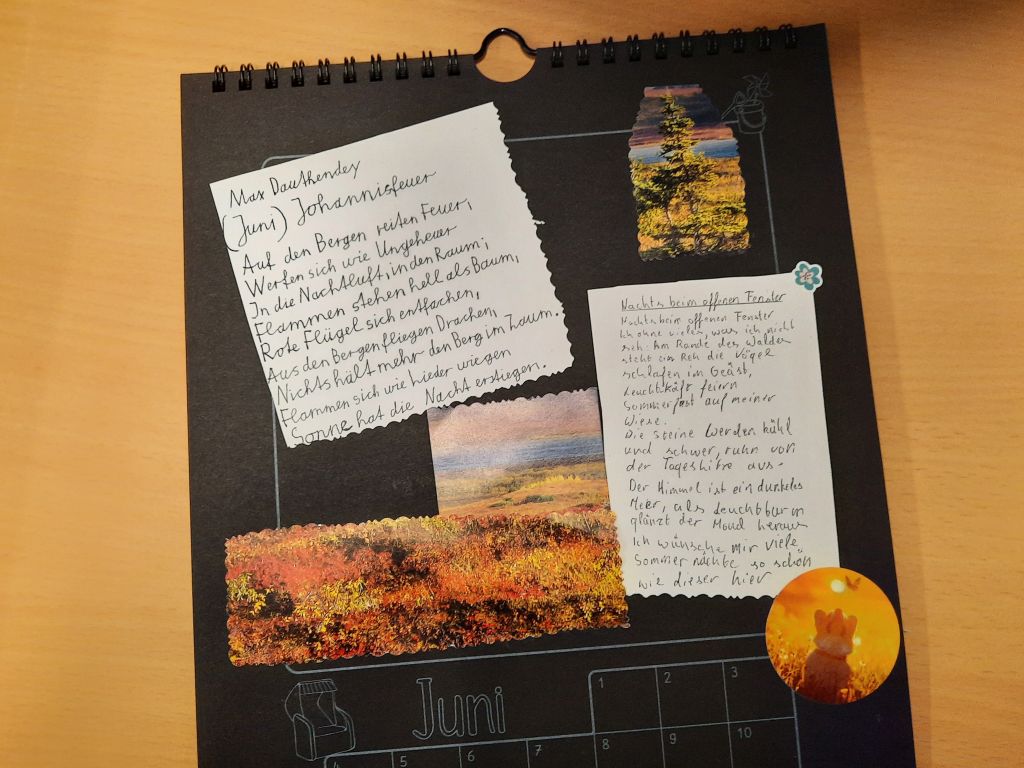 Max Dauthendey
(Juni) Johannisfeuer
Auf den Bergen reiten Feuer,
Werfen sich wie Ungeheuer
In die Nachtluft, in den Raum;
Flammen stehen hell als Baum,
Rote Flügel sich entfachen,
Aus den Bergen fliegen Drachen,
Nichts hält mehr den Berg im Zaum.
Flammen sich wie Lieder wiegen
Sonne hat die Nacht erstiegen.
Nachts beim offenen Fenster
Nachts beim offenen Fenster
Ich ahne vieles, was ich nicht
seh. Am Rande des Waldes
steht ein Reh die Vögel
schlafen im Geäst,
Leuchtkäfr feiern
Sommerfest auf meiner
Wiese.
Die Steine werden kühl
und schwer, ruhn von
der Tageshitze aus.
Der Himmel ist ein dunkeles
Meer, als Leuchtturm
glänzt der Mond heraus
Ich wünsche mir viele
Sommernächte so schön
wie dieser hier
Juni
1 2 3
4 5 6 7 8 9 10